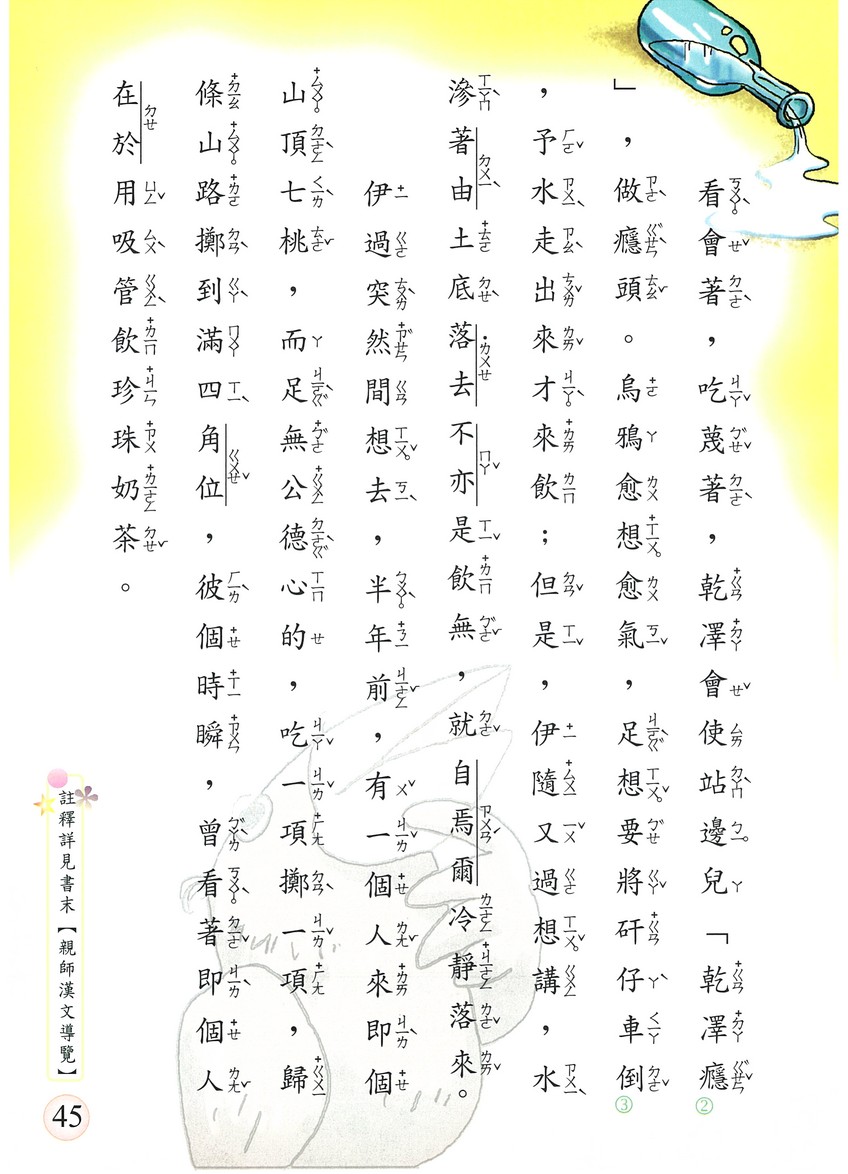 看會著，吃蔑著，乾澤會使站邊兒「乾澤癮②
」，做癮頭。烏鴉愈想愈氣，足想要將矸仔車倒③
，予水走出來才來飲；但是，伊隨又過想講，水
滲著由土底落去不亦是飲無，就自焉爾冷靜落來。
伊過突然間想去，半年前，有一個人來即個
山頂七桃，而足無公德心的，吃一項擲一項，歸
條山路擲到滿四角位，彼個時瞬，曾看著即個人
在於用吸管飲珍珠奶茶。
註釋詳見書末【親師漢文導覽】
45